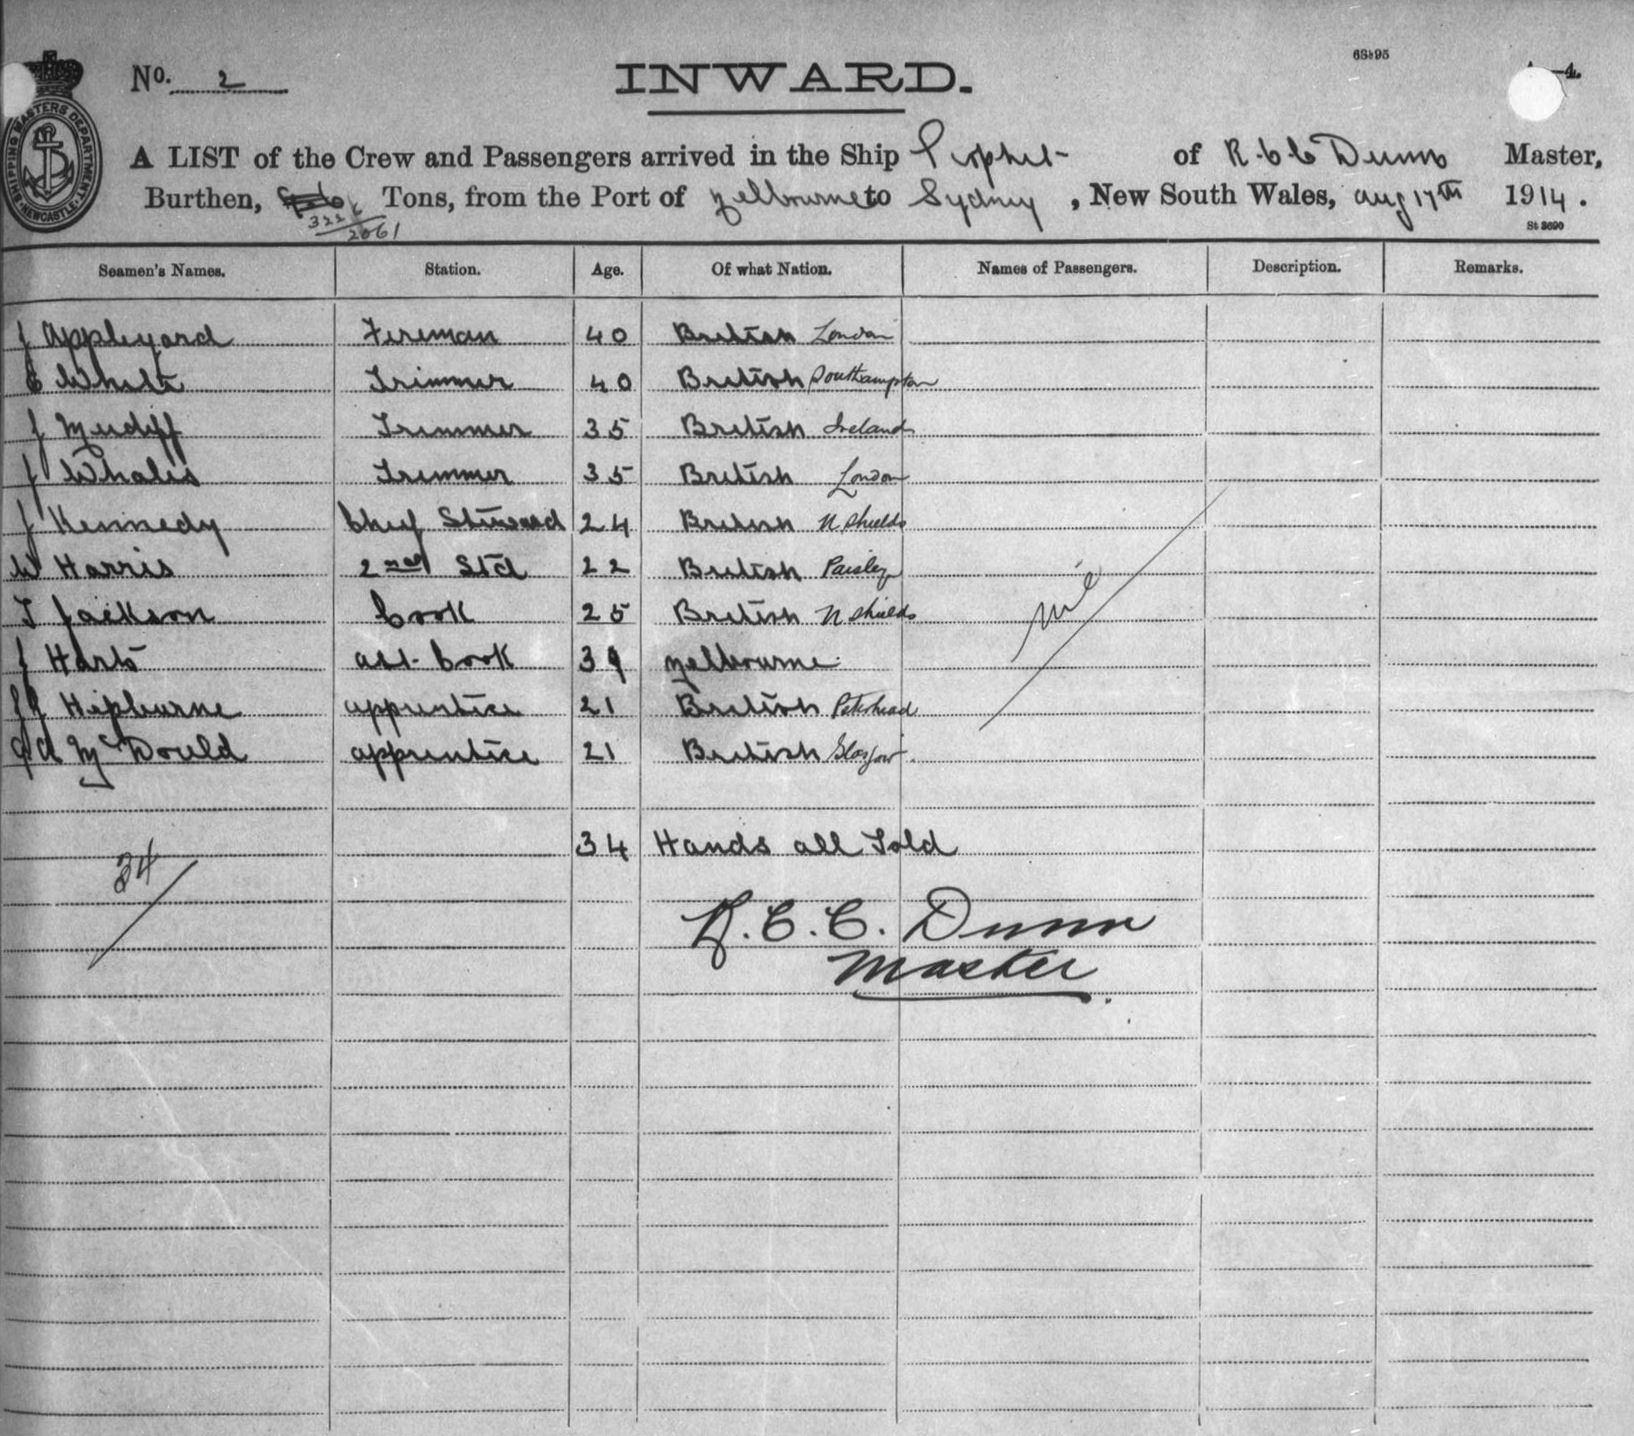 No. 2
INWARD.
SHIPPING MASTERS DEPARTMENT NEWCASTLE
A LIST of the Crew and Passengers arrived in the Ship Prophet of R. C. C Dunn Master,
Burthen, Tons, from the Port of Melbourne to Sydney, New South Wales, Aug 17th 1914.
3226
2061
Seamen's Names. Station. Age. Of what Nation. Names of Passengers. Description. Remarks.
J Appleyard Fireman 40 British London
C White Trimmer 40 British Southampton
J Mudiff Trimmer 35 British Ireland
J Whalis Trimmer 35 British London
J Kennedy Chief Steward 24 British N Shields
W Harris 2nd Std 22 British Paisley
T Jackson Cook 25 British N Shields
J Harts asst. Cook 39 Melbourne
JJ Hepburne apprentice 21 British Peterhead
McDould apprentice 21 British Glasgow
nil
34 Hands all Told
34
R. C. C. Dunn
Master.